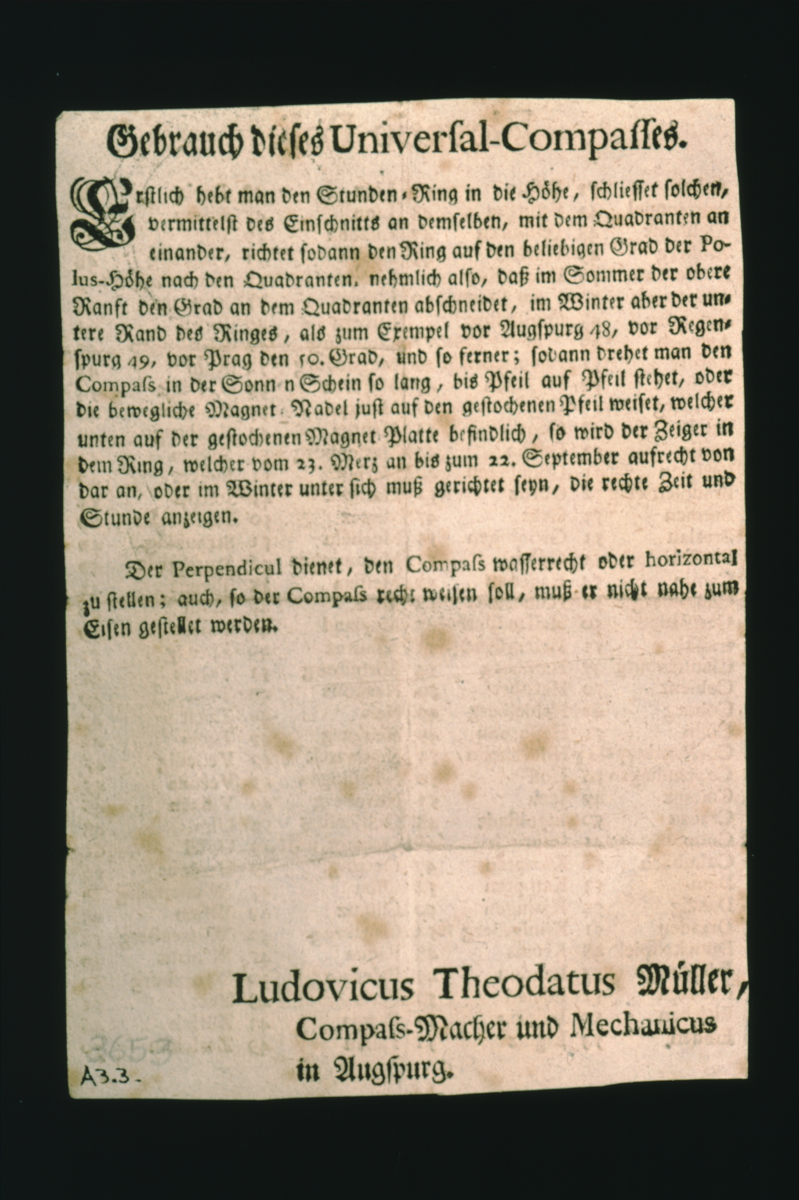 Gebrauch dieses Universal-Compasses.
Erstlich hebt man den Stunden-Ring in die Höhe, schliesset solchen,
vermittelst des Einschnitts an demselben, mit dem Quadranten an
einander, richtet sodann den Ring auf den beliebigen Grad der Po-
lus-Höhe nach den Quadranten, nehmlich also, daß im Sommer der obere
Ranft den Grad an dem Quadranten abschneidet, im Winter aber der un-
tere Rand des Ringes, als zum Exempel vor Augspurg 48, vor Regen-
spurg 49, vor Prag den 50. Grad, und so ferner; sodann drehet man den
Compass in der Sonnen Schein so lang, bis Pfeil auf Pfeil stehet, oder
die bewegliche Magnet-Nadel just auf den gestochenen Pfeil weiset, welcher
unten auf der gestochenen Magnet Platte befindlich, so wird der Zeiger in
dem Ring, welcher vom 23. Merz an bis zum 22. September aufrecht von
dar an, oder im Winter unter sich muß gerichtet seyn, die rechte Zeit und
Stunde anzeigen.
Der Perpendicul dienet, den Compass wasserrecht oder horizontal
zu stellen; auch, so der Compass recht weisen soll, muß er nicht nahe zum
Eisen gestellet werden.
Ludovicus Theodatus Müller,
Compass-Macher und Mechanicus
in Augspurg.
3653
A3.3.